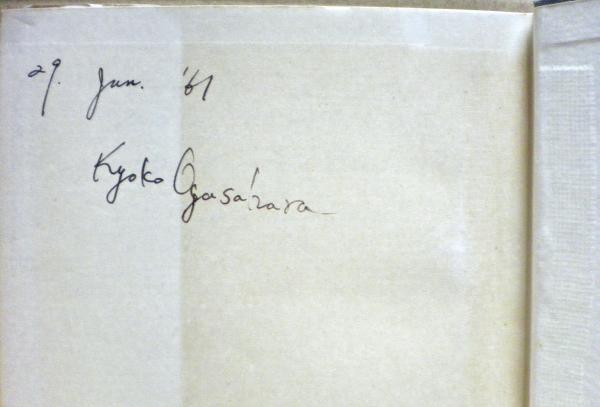 29. Jun. '61
Kyoko Ogasahara